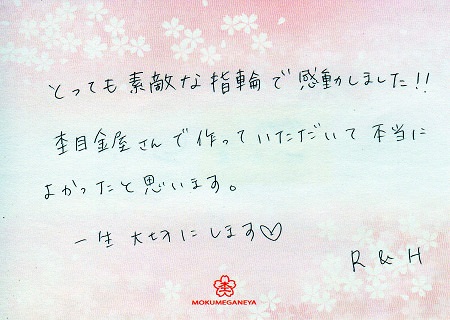 とっても素敵な指輪で感動しました!!
杢目金屋さんで作っていただいて本当に
よかったと思います。
一生大切にします♡
R & H
杢
MOKUMEGANEYA